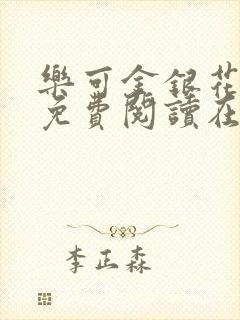 樂可金銀花
免費閱讀在
李正森